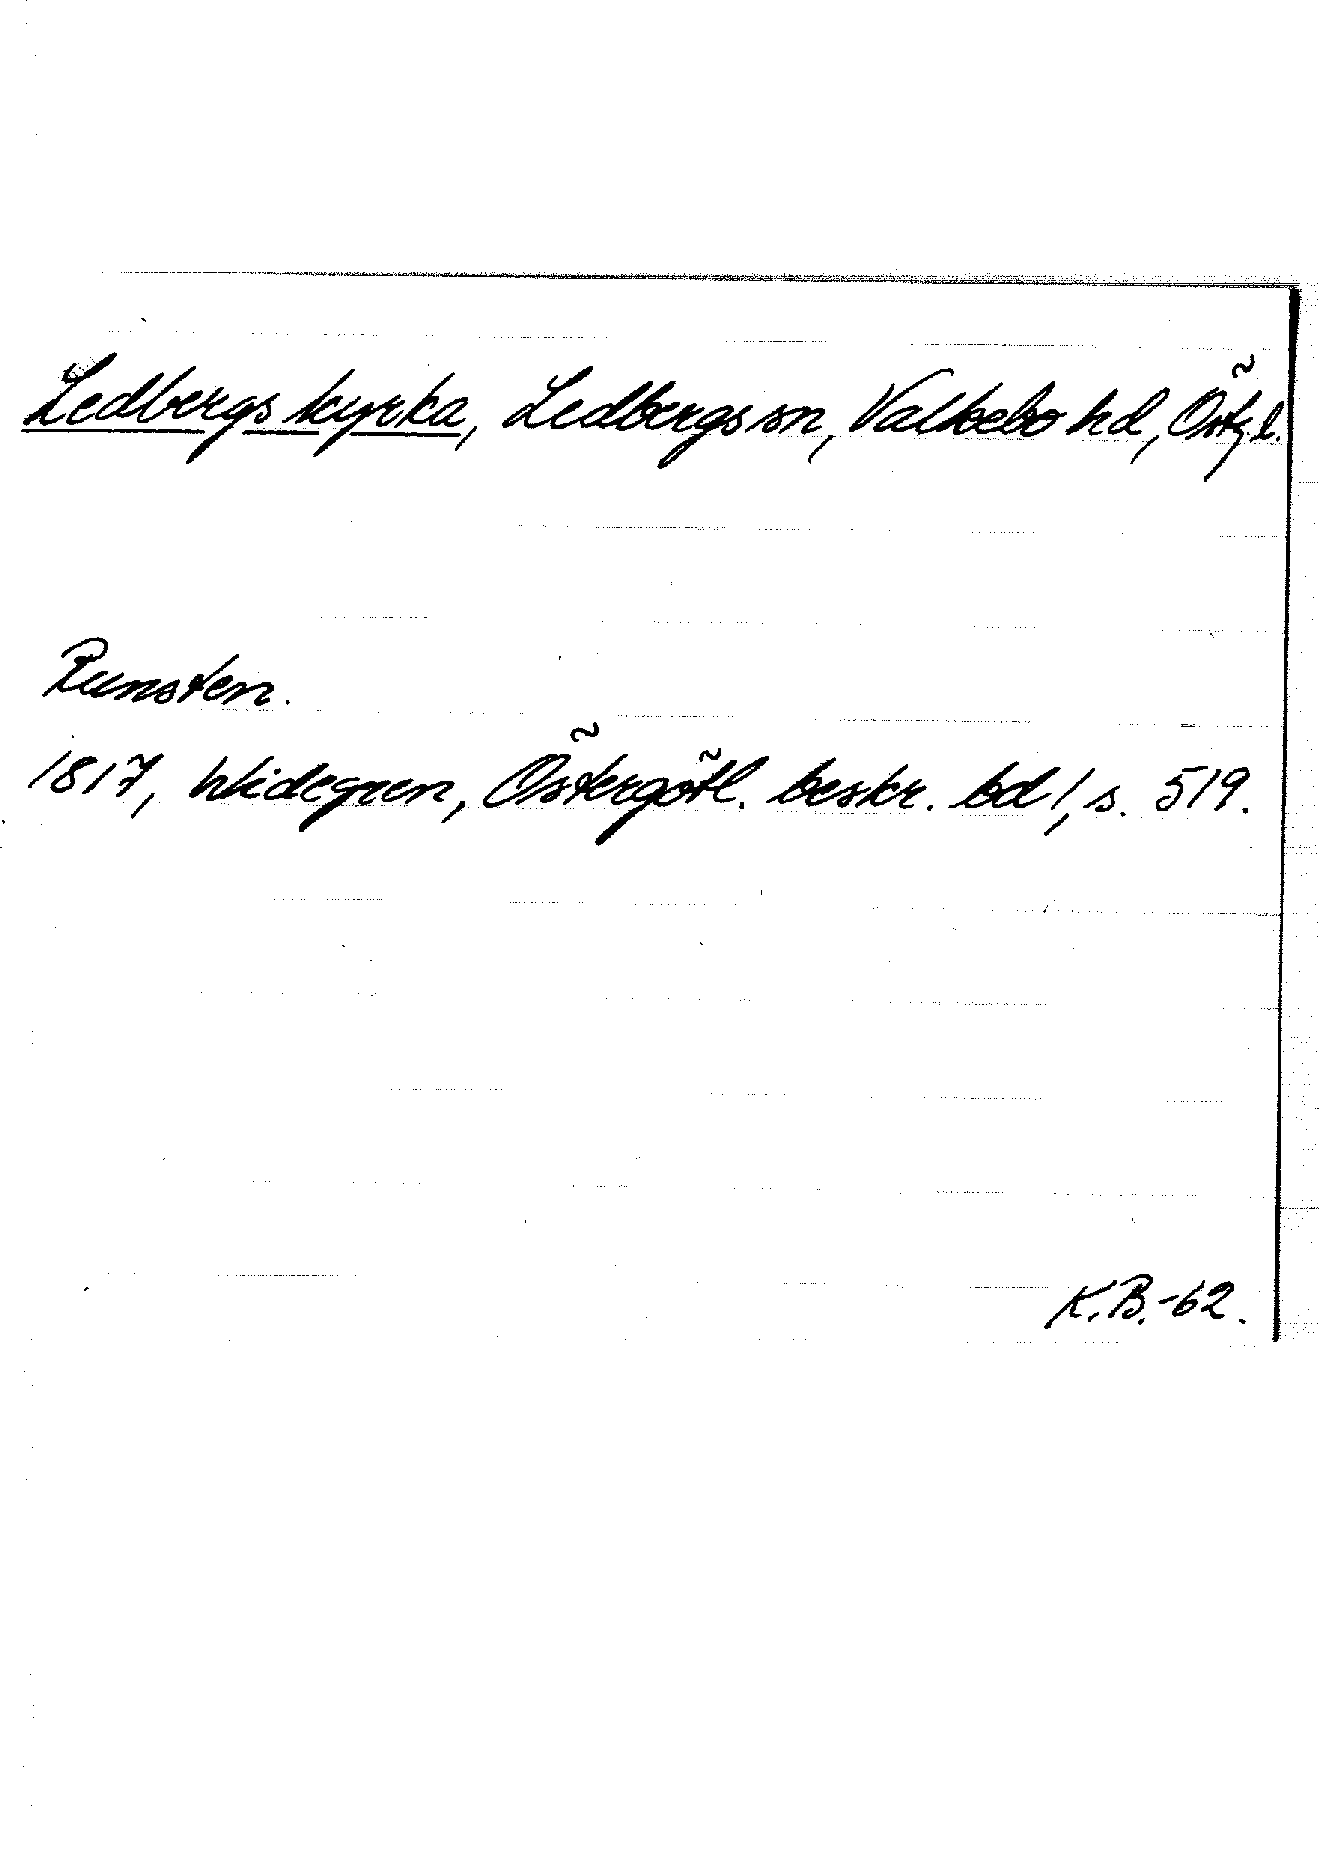 Ledbergs kyrka, Ledbergs sn, Valkebo hd, Östg.l.
Runsten.
1817, Widegren, Östergötl. beskr. bd 1, s. 519.
K.B.-62.